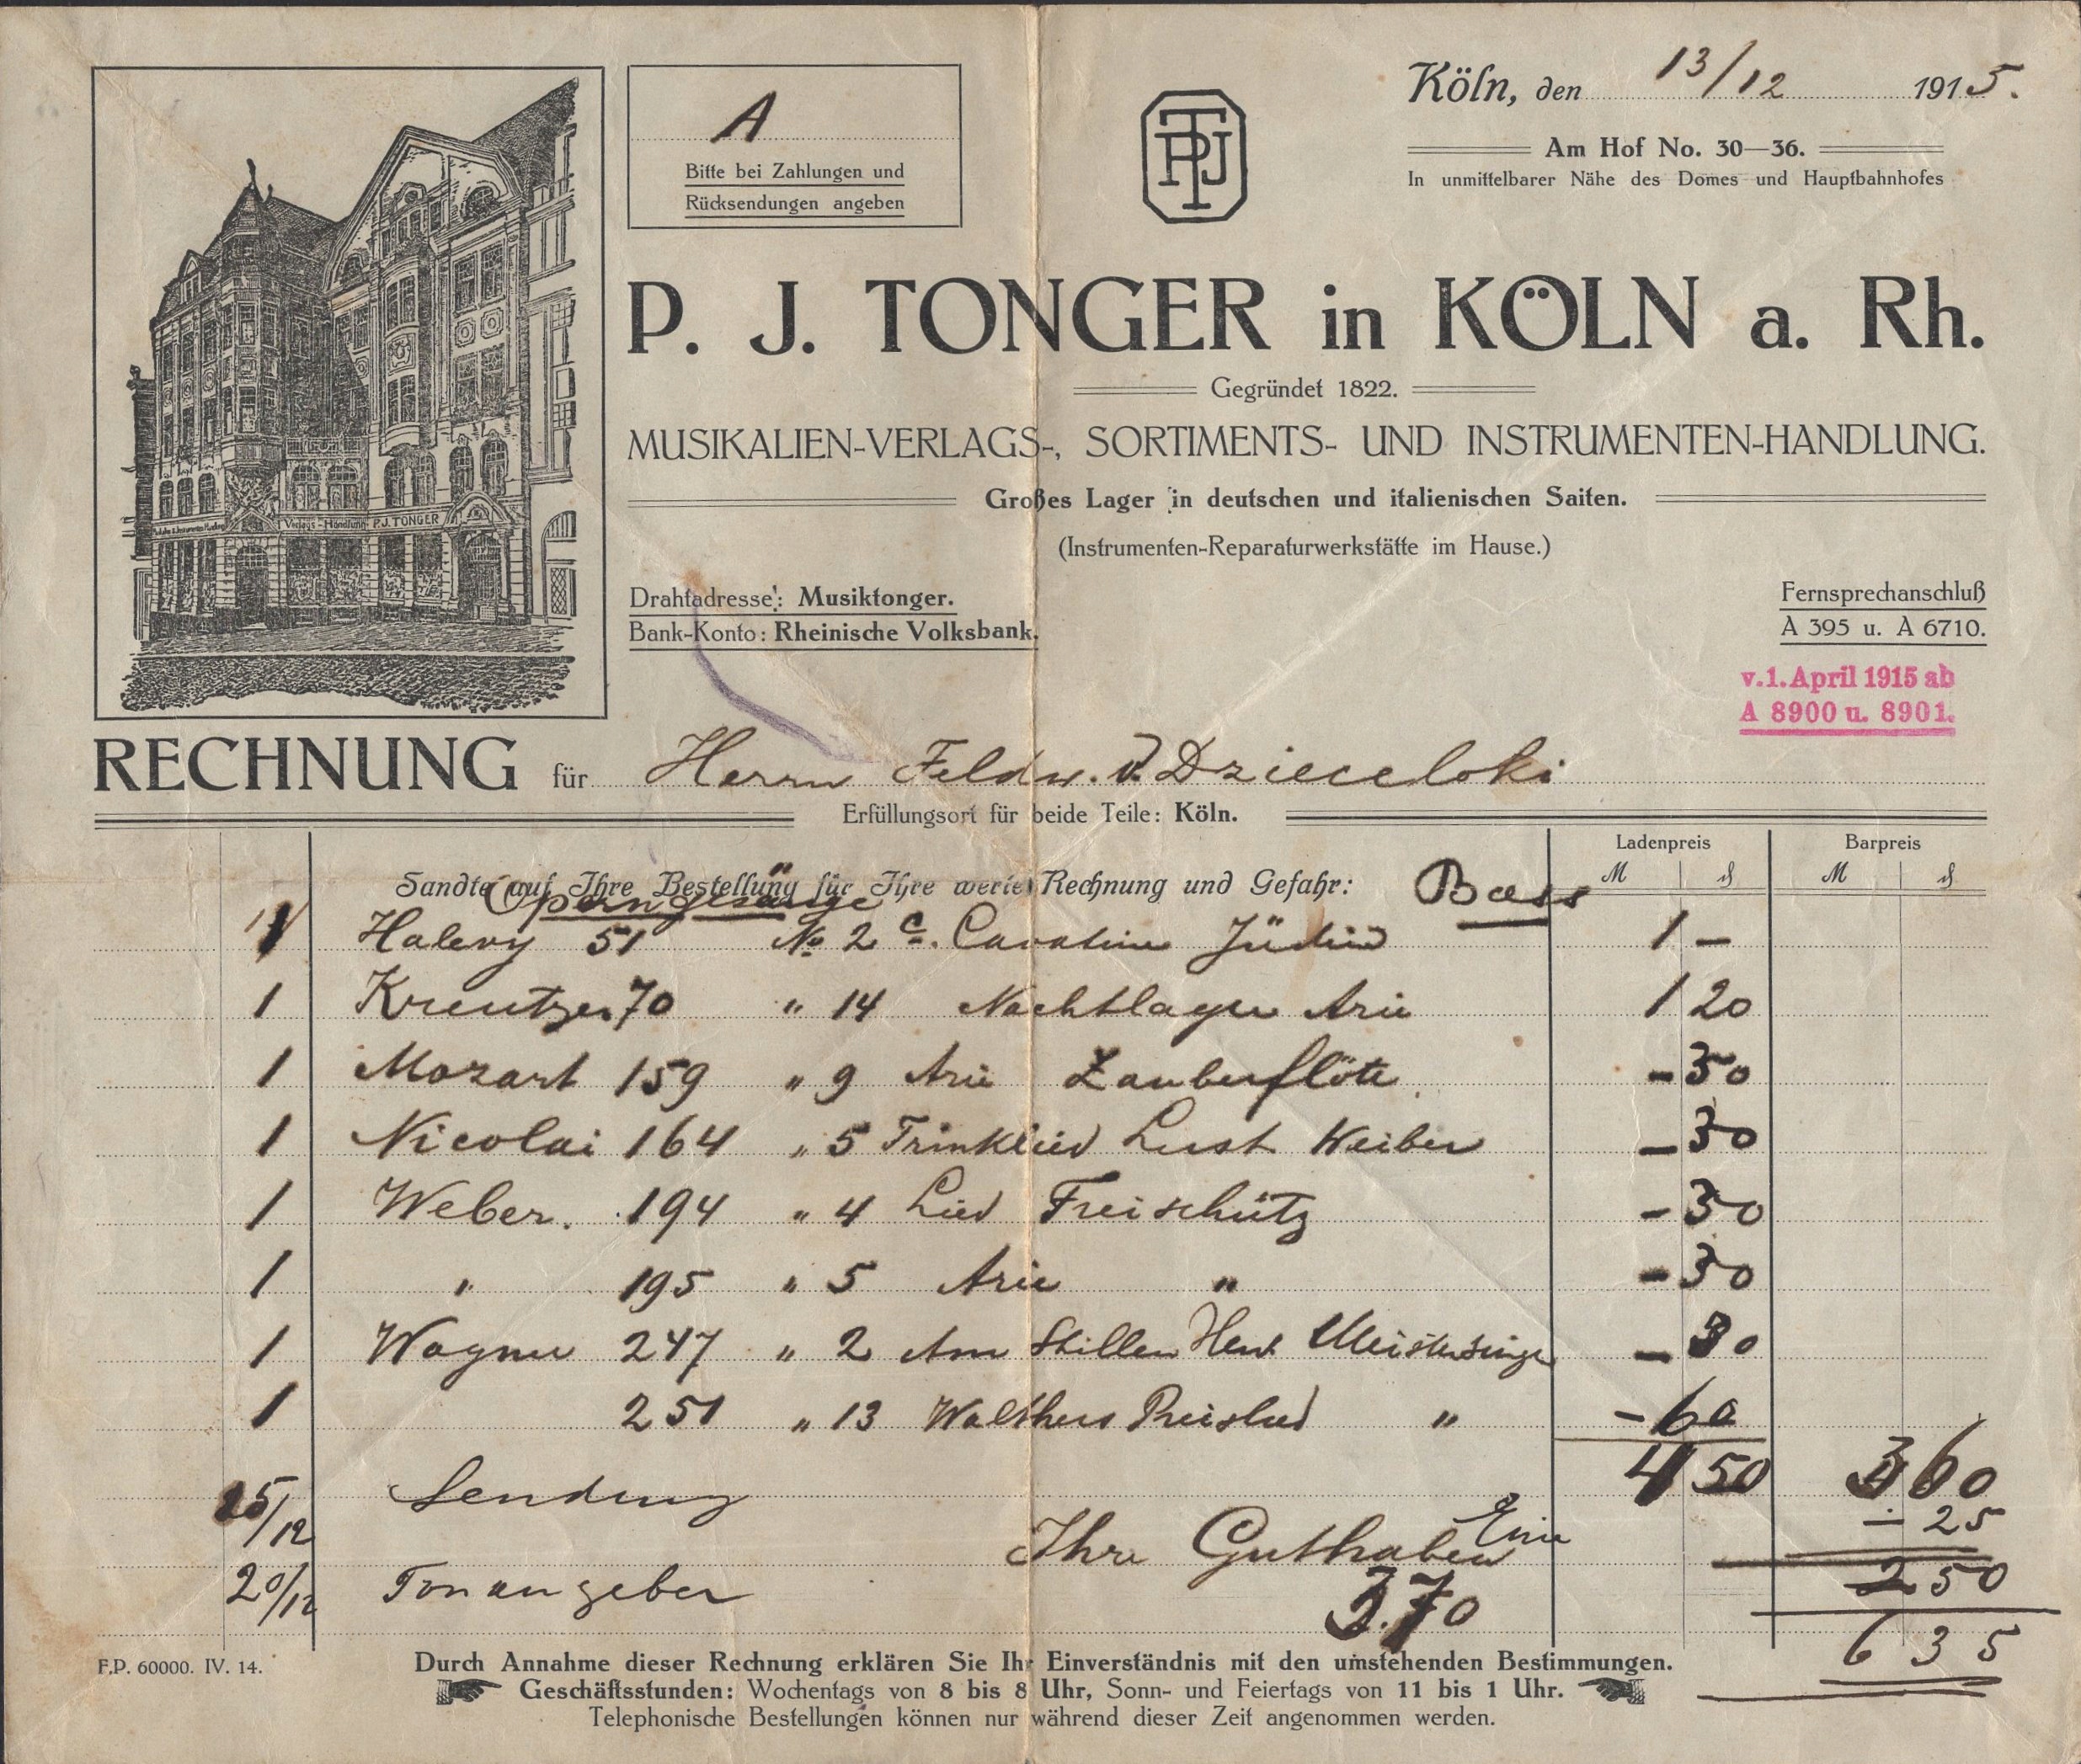 A
Bitte bei Zahlungen und
Rücksendungen angeben
PTJ
Köln, den 13/12 1915.
Am Hof No. 30—36.
In unmittelbarer Nähe des Domes und Hauptbahnhofes
P. J. TONGER in KÖLN a. Rh.
Gegründet 1822.
MUSIKALIEN-VERLAGS-, SORTIMENTS- UND INSTRUMENTEN-HANDLUNG.
Großes Lager in deutschen und italienischen Saiten.
(Instrumenten-Reparaturwerkstätte im Hause.)
Verlags-Handlung P.J. TONGER
Drahtadresse: Musiktonger.
Bank-Konto: Rheinische Volksbank.
Fernsprechanschluß
A 395 u. A 6710.
v. 1. April 1915 ab
A 8900 u. 8901.
RECHNUNG für Herrn Feldw. v. Dzieceloki
Erfüllungsort für beide Teile: Köln.
Ladenpreis Barpreis
M ₰ M ₰
Sandte auf Ihre Bestellung für Ihre werte Rechnung und Gefahr: Bass
Operngesänge
1 Halevy 51 No 2 c. Cavatine Jüdin 1 —
1 Kreutzer 70 " 14 Nachtlager Arie 1 20
1 Mozart 159 " 9 Arie Zauberflöte — 50
1 Nicolai 164 " 5 Trinklied Lust Weiber — 30
1 Weber. 194 " 4 Lied Freischütz — 30
1 " 195 " 5 Arie " — 30
1 Wagner 247 " 2 Am Stillen Herd Meistersinger — 30
1 251 " 13 Walthers Preislied " — 60
4 50 3 60
15/12 Sendung — 25
Ihr Guthaben
20/12 Tonangeber 2 50
3.70
6 35
F.P. 60000. IV. 14.
Durch Annahme dieser Rechnung erklären Sie Ihr Einverständnis mit den umstehenden Bestimmungen.
Geschäftsstunden: Wochentags von 8 bis 8 Uhr, Sonn- und Feiertags von 11 bis 1 Uhr.
Telephonische Bestellungen können nur während dieser Zeit angenommen werden.